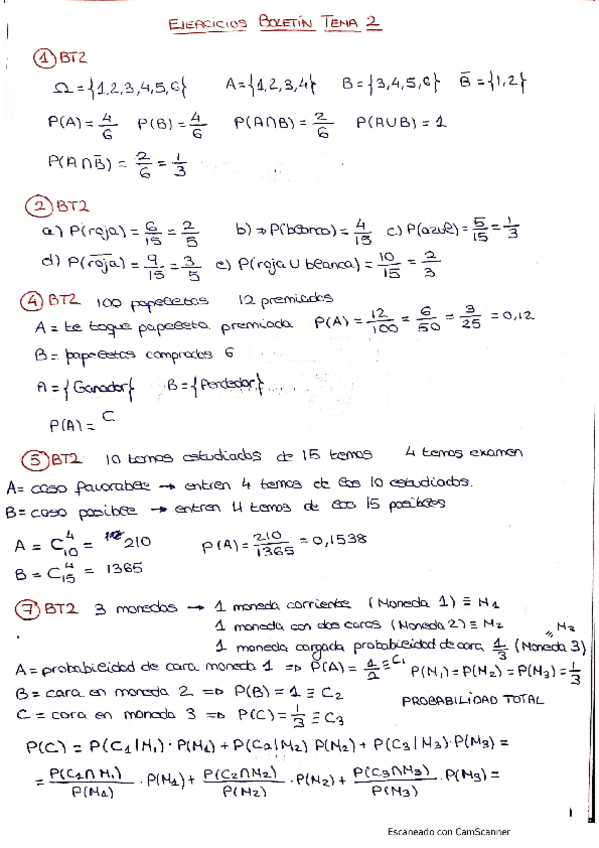 EJERCICIOS BOLETÍN TEMA 2
① BT2
Ω = {1,2,3,4,5,6} A = {1,2,3,4} B = {3,4,5,6} B̄ = {1,2}
P(A) = 4/6 P(B) = 4/6 P(A∩B) = 2/6 P(A∪B) = 1
P(A∩B̄) = 2/6 = 1/3
② BT2
a) P(roja) = 6/15 = 2/5 b) ⇒ P(blanco) = 4/15 c) P(azul) = 5/15 = 1/3
d) P(r̅o̅j̅a̅) = 9/15 = 3/5 e) P(roja ∪ blanca) = 10/15 = 2/3
④ BT2 100 papeletas 12 premiados
A = te toque papeleta premiada P(A) = 12/100 = 6/50 = 3/25 = 0,12
B = papeletas compradas 6
A = {Ganador} B = {Perdedor}
P(A) = C
⑤ BT2 10 temas estudiados de 15 temas 4 temas examen
A = caso favorable → entren 4 temas de los 10 estudiados.
B = caso posible → entren 4 temas de los 15 posibles
A = C₁₀⁴ = 210 P(A) = 210/1365 = 0,1538
B = C₁₅⁴ = 1365
⑦ BT2 3 monedas → 1 moneda corriente (Moneda 1) ≡ M₁
1 moneda con dos caras (Moneda 2) ≡ M₂
1 moneda cargada probabilidad de cara 1/3 (Moneda 3) ≡ M₃
A = probabilidad de cara moneda 1 ⇒ P(A) = 1/2 ≡ C₁ P(M₁) = P(M₂) = P(M₃) = 1/3
B = cara en moneda 2 ⇒ P(B) = 1 ≡ C₂
C = cara en moneda 3 ⇒ P(C) = 1/3 ≡ C₃ PROBABILIDAD TOTAL
P(C) = P(C₁|M₁) · P(M₁) + P(C₂|M₂) P(M₂) + P(C₃|M₃) · P(M₃) =
= P(C₁∩M₁)/P(M₁) · P(M₁) + P(C₂∩M₂)/P(M₂) · P(M₂) + P(C₃∩M₃)/P(M₃) · P(M₃) =
1
Escaneado con CamScanner